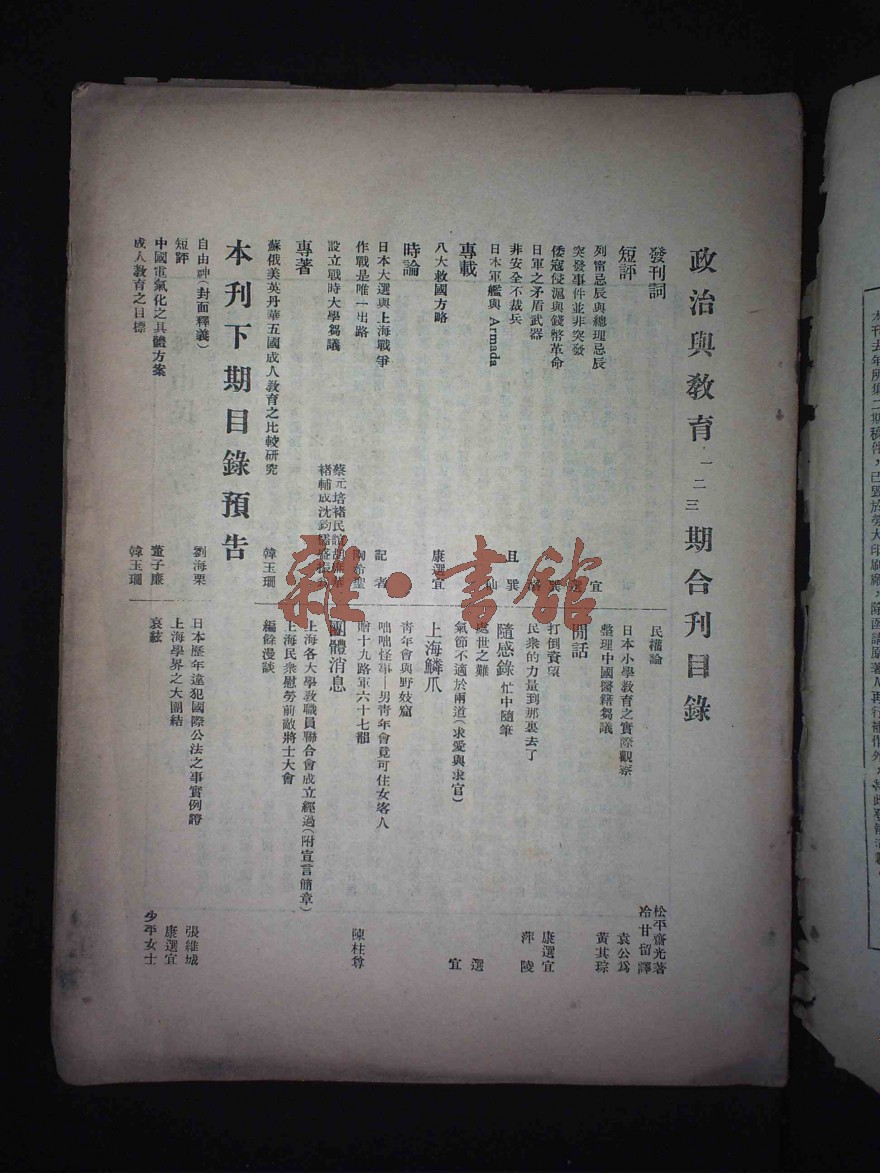 政治與教育·一二三期合刊目錄
發刊詞
短評
列甯忌辰與總理忌辰
突發事件並非突發
倭寇侵滬與錢幣革命
日軍之矛盾武器
非安全不裁兵
日本軍艦與 Armada
專載
八大救國方略
時論
日本大選與上海戰爭
作戰是唯一出路
設立戰時大學芻議
專著
蘇俄美英丹華五國成人教育之比較研究
宜
巽
且
仙
康選宜
記者
陶希聖
蔡元培褚民誼
褚輔成沈鈞儒
韓玉珊
民權論
日本小學教育之實際觀察
整理中國醫籍芻議
閒話
打倒奢望
民衆的力量到那裏去了
隨感錄 忙中隨筆
處世之難
氣節不適於兩道(求愛與求官)
上海鱗爪
靑年會與野妓窟
咄咄怪事—男靑年會竟可住女客人
贈十九路軍六十七韻
團體消息
上海各大學教職員聯合會成立經過(附宣言簡章)
上海民衆慰勞前敵將士大會
編餘漫談
松平齋光著
冷甘留譯
袁公爲
黃其琮
康選宜
萍陵
選
宜
陳柱尊
本刊下期目錄預告
自由神(封面釋義)
短評
中國電氣化之具體方案
成人教育之目標
劉海粟
董子廉
韓玉珊
日本歷年違犯國際公法之事實例證
上海學界之大團結
哀絃
張維城
康選宜
少平女士
雜·書舘